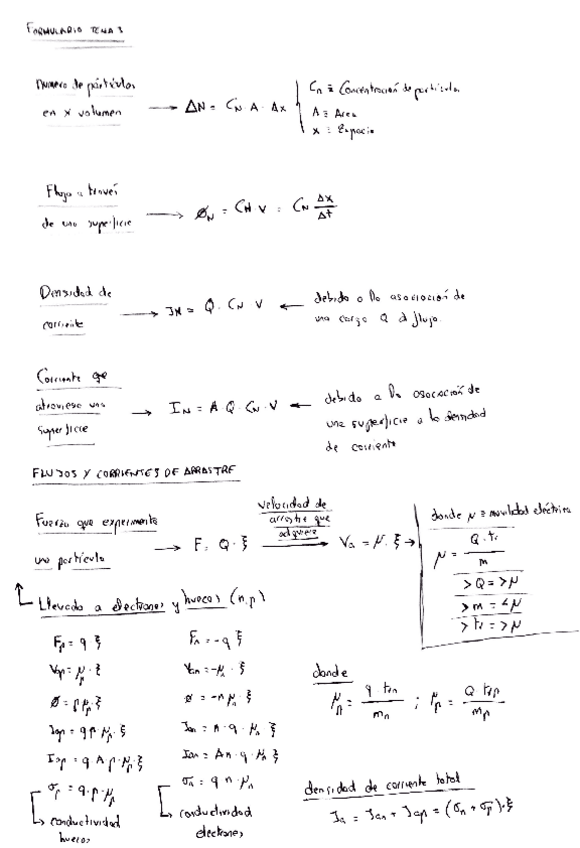 FORMULARIO TEMA 3
Número de partículas
en x volumen → ΔN = C_N · A · Δx
C_n ≡ Concentración de partículas
A ≡ Area
x ≡ Espacio
Flujo a través
de una superficie → Ø_N = C_N V = C_N Δx/Δt
Densidad de
corriente → J_N = Q · C_N · V ← debido a la asociación de
una carga Q al flujo.
Corriente que
atraviesa una
superficie → I_N = A · Q · C_N · V ← debido a la asociación de
una superficie a la densidad
de corriente
FLUJOS Y CORRIENTES DE ARRASTRE
Fuerza que experimenta
una partícula → F = Q · ξ
velocidad de
arrastre que
adquiere → V_a = μ · ξ →
donde μ ≡ movilidad eléctrica
μ = Q · tr / m
> Q = > μ
> m = < μ
> tr = > μ
Llevado a electrones y huecos (n,p)
F_p = q ξ F_n = -q ξ
V_ap = μ_p · ξ V_an = -μ_n · ξ
Ø = p μ_p · ξ Ø = -n μ_n · ξ
J_ap = q p μ_p · ξ J_an = n · q · μ_n · ξ
I_ap = q A p · μ_p · ξ I_an = A n · q · μ_n · ξ
σ_p = q · p · μ_p σ_n = q n · μ_n
conductividad huecos
conductividad electrones
donde
μ_n = q · tr_n / m_n ; μ_p = Q · tr_p / m_p
densidad de corriente total
J_a = J_an + J_ap = (σ_n + σ_p) · ξ